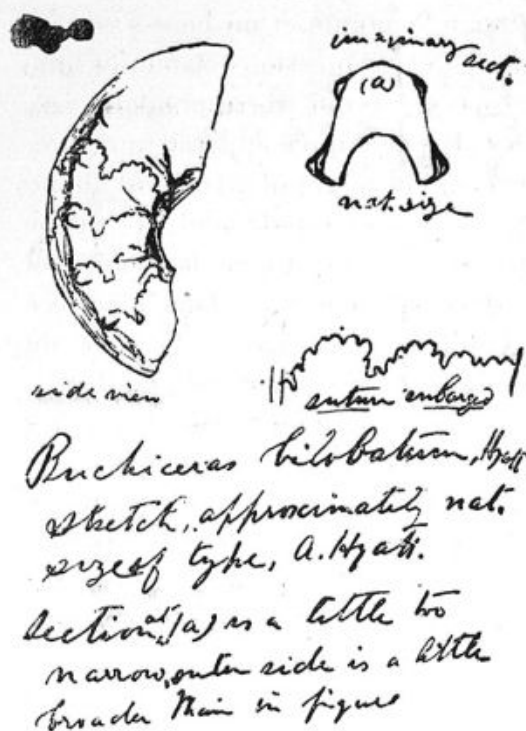 imaginary sect.
(a)
nat. size
side view
suture enlarged
Buchiceras bilobatum, Hyatt
sketch, approximately nat.
size of type, A. Hyatt.
Section at (a) is a little too
narrow, outer side is a little
broader than in figure